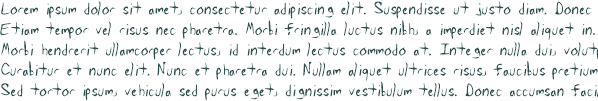 Lorem ipsum dolor sit amet, consectetur adipiscing elit. Suspendisse ut justo diam. Donec
Etiam tempor vel risus nec pharetra. Morbi fringilla luctus nibh, a imperdiet nisl aliquet in.
Morbi hendrerit ullamcorper lectus, id interdum lectus commodo at. Integer nulla dui, volut
Curabitur et nunc elit. Nunc et pharetra dui. Nullam aliquet ultrices risus, faucibus pretium
Sed tortor ipsum, vehicula sed purus eget, dignissim vestibulum tellus. Donec accumsan faci